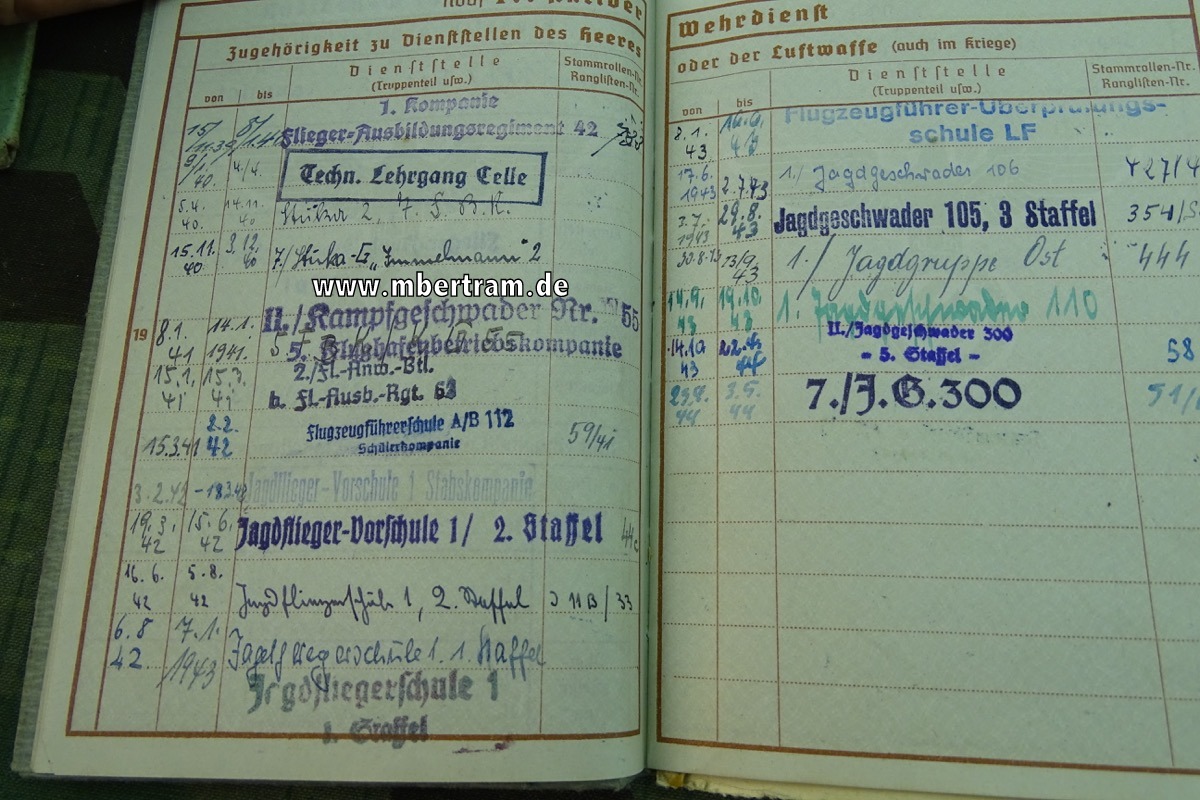 Wehrdienst
Zugehörigkeit zu Dienststellen des Heeres
oder der Luftwaffe (auch im Kriege)
von
bis
Dienststelle
(Truppenteil usw.)
Stammrollen-Nr.
Ranglisten-Nr.
1. Kompanie
Flieger-Ausbildungsregiment 42
4./4.
Techn. Lehrgang Celle
5.4.
40.
14.11.
40
Stuka 2,
15.11.
40
3.12.
40
7./Stuka-G. „Immelmann" 2
www.mbertram.de
19
8.1.
41
14.1.
1941.
II./Kampfgeschwader Nr. 55
5. Flughafenbetriebskompanie
15.1.
41
15.3.
41
2./Fl.-Anw.-Btl.
b. Fl.-Ausb.-Rgt. 63
15.3.41
2.2.
42
Flugzeugführerschule A/B 112
Schülerkompanie
59/41
3.2.42
Jagdflieger-Vorschule 1 Stabskompanie
19.3.
42
15.6.
42
Jagdflieger-Vorschule 1/ 2. Staffel
16.6.
42
5.8.
42
Jagdfliegerschule 1, 2. Staffel
6.8
42
7.1.
1943
Jagdfliegerschule 1. 1. Staffel
Jagdfliegerschule 1
1. Staffel
von
bis
Dienststelle
(Truppenteil usw.)
Stammrollen-Nr.
Ranglisten-Nr.
8.1.
43
16.6.
43
Flugzeugführer-Überprüfungs-
schule LF
17.6.
1943
2.7.43
1./ Jagdgeschwader 106
3.7.
1943
29.8.
43
Jagdgeschwader 105, 3 Staffel
354/S
30.8.43
13/9.
43
1./ Jagdgruppe Ost
444
14.9.
43
19.10
43
1. Jagdgeschwader 110
II./Jagdgeschwader 300
- 5. Staffel -
58
44
3.5.
44
7./J.G.300
51/